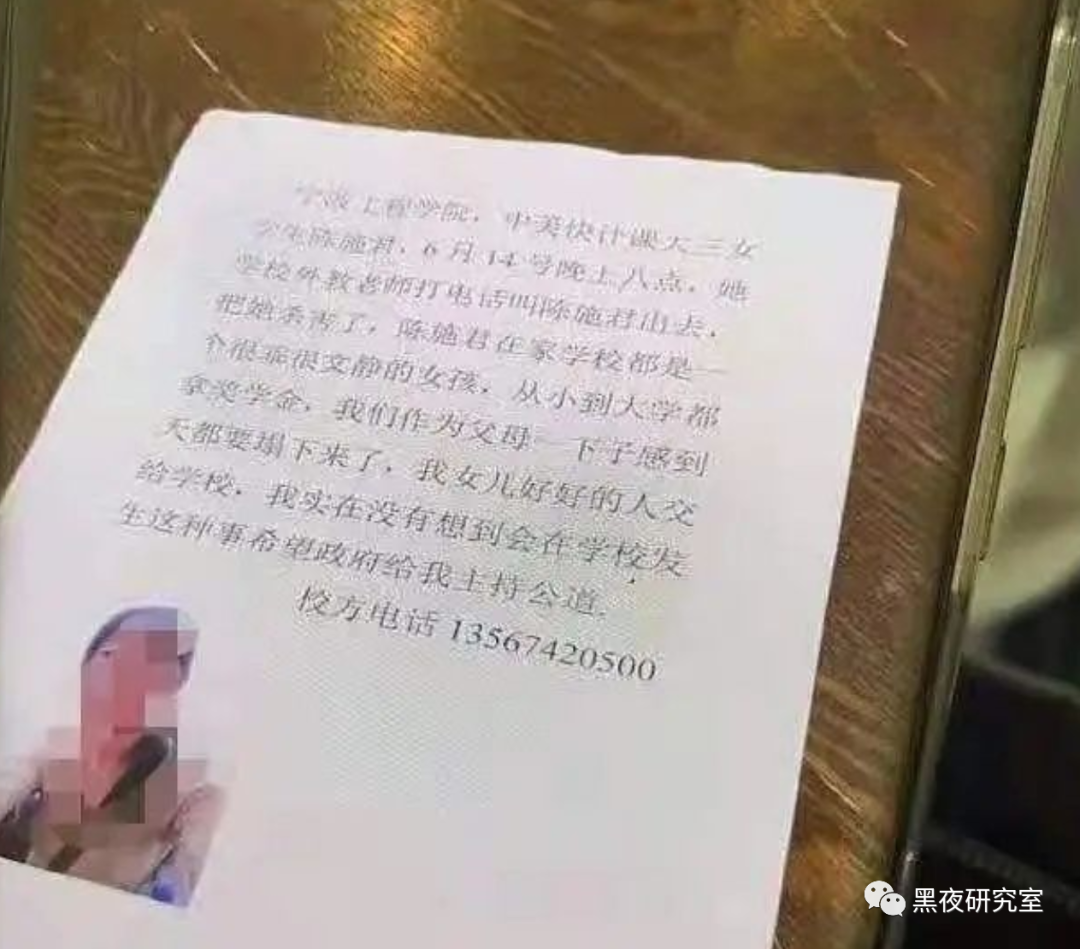 宁波工程学院，中美快计课大三女
学生陈施君，6月14号晚上八点，她
学校外教老师打电话叫陈施君出去，
把她杀害了，陈施君在家学校都是一
个很乖很文静的女孩，从小到大学都
拿奖学金，我们作为父母一下子感到
天都要塌下来了，我女儿好好的人交
给学校，我实在没有想到会在学校发
生这种事希望政府给我主持公道.
校方电话 13567420500
黑夜研究室